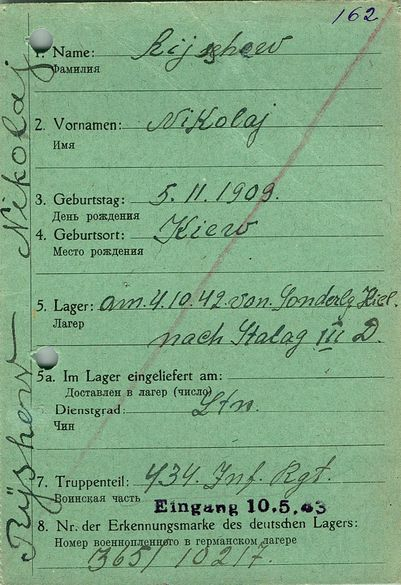 162
1. Name: Rijschew
Фамилия
2. Vornamen: Nikolaj
Имя
3. Geburtstag: 5. 11. 1909.
День рождения
4. Geburtsort: Kiew
Место рождения
5. Lager: am 4.10.42 von Sonderlg Kiel.
Лагер
nach Stalag III D.
5a. Im Lager eingeliefert am:
Доставлен в лагер (число)
Dienstgrad: Ltn.
Чин
7. Truppenteil: 434. Inf. Rgt.
Воинская часть
Eingang 10.5.43
8. Nr. der Erkennungsmarke des deutschen Lagers:
Номер военнопленного в германском лагере
1365/10217.
Nikolaj